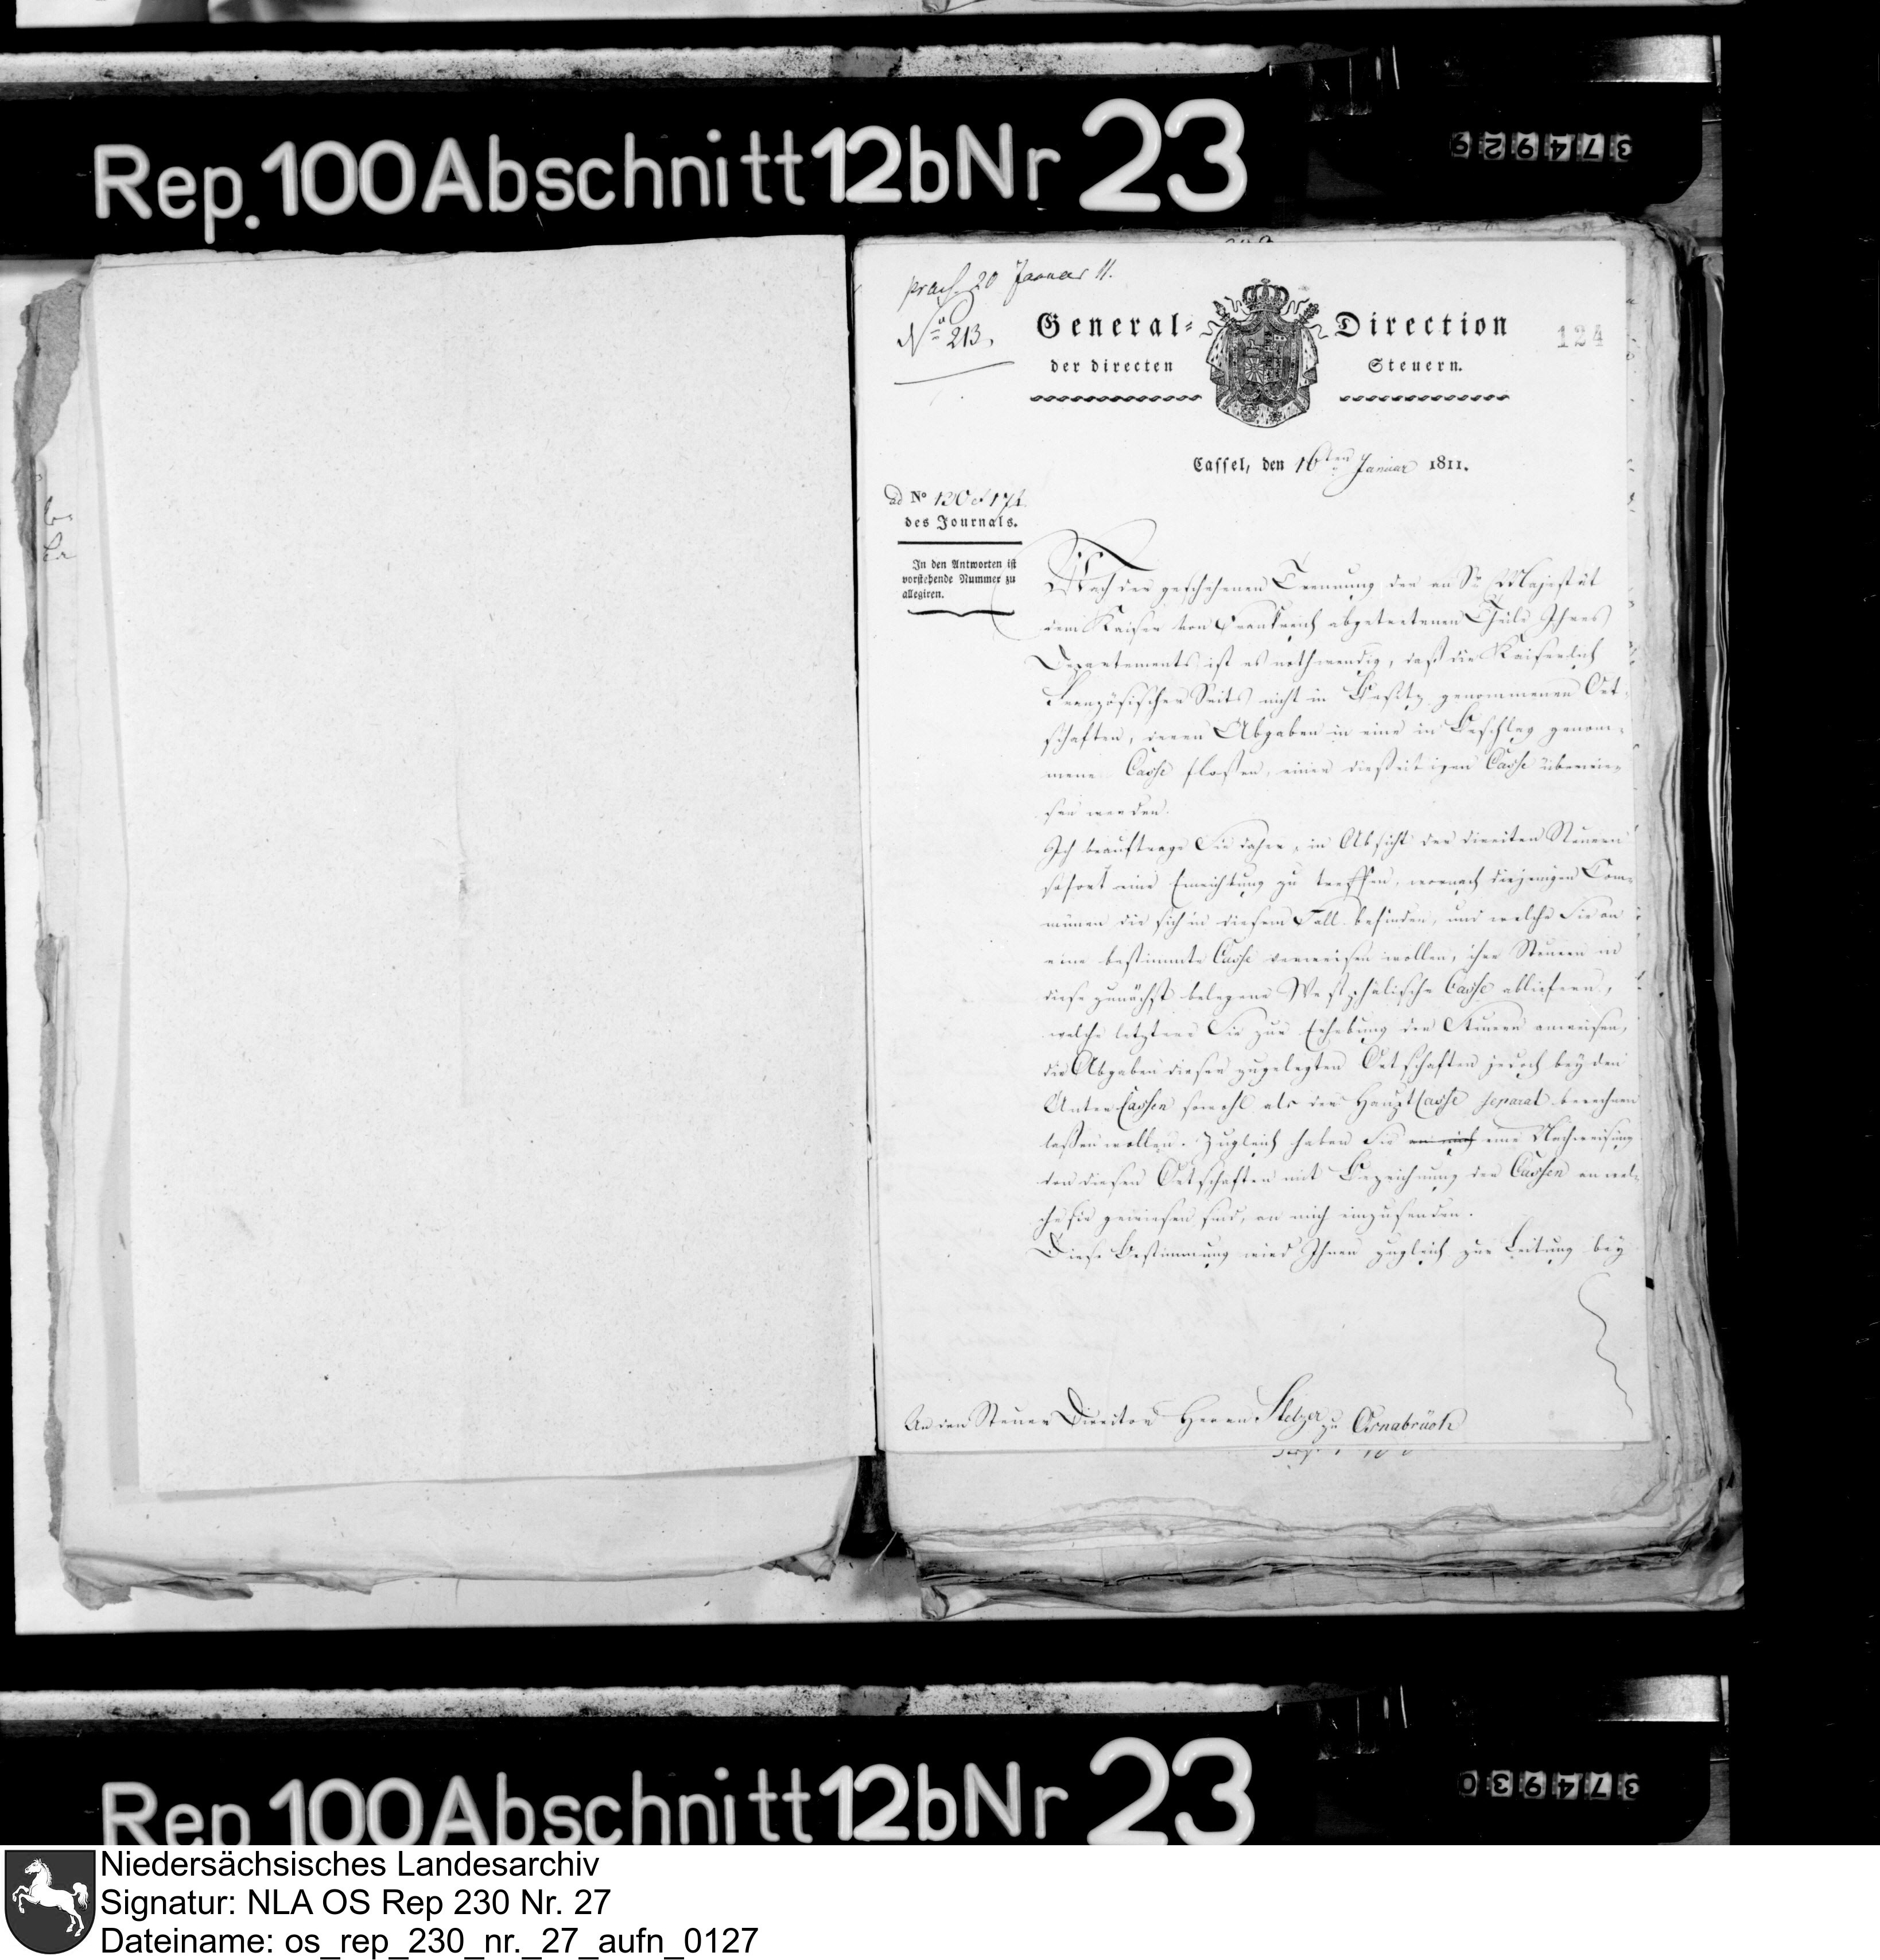 Rep. 100 Abschnitt 12b Nr 23
374929
praes. 20 Januar 11.
No 213.
General- Direction
der directen Steuern.
124
Cassel, den 16ten Januar 1811.
ad No 120 et 174
des Journals.
In den Antworten ist
vorstehende Nummer zu
allegiren.
Nach der geschehenen Trennung der an Sr. Majestät
dem Kaiser von Frankreich abgetretenen Theile Ihres
Departements ist es nothwendig, daß die Kaiserlich
Französischer Seits nicht in Besitz genommenen Ort-
schaften, deren Abgaben in eine in Beschlag genom-
mene Casse floßen, einer diesseitigen Casse überwie-
sen werden.
Ich beauftrage Sie daher, in Absicht der directen Steuern
sofort eine Einrichtung zu treffen, wornach diejenigen Com-
münen die sich in diesem Fall befinden, und welche Sie an
eine bestimmte Casse verweisen wollen, ihre Steuern in
diese zunächst belegene Westphälische Casse abliefern,
welche letztere Sie zur Erhebung der Steuern anweisen,
die Abgaben dieser zugelegten Ortschaften jedoch bey den
Unter Cassen sowohl als der HauptCasse separat berechnen
laßen wollen. Zugleich haben Sie an mich eine Nachweisung
von diesen Ortschaften mit Bezeichnung der Cassen an wel-
che sie gewiesen sind, an mich einzusenden.
Diese Bestimmung wird Ihnen zugleich zur Leitung bey
An den Steuer Director Herrn Stelzer zu Osnabrück
Rep 100 Abschnitt 12b Nr 23
374930
Niedersächsisches Landesarchiv
Signatur: NLA OS Rep 230 Nr. 27
Dateiname: os_rep_230_nr._27_aufn_0127